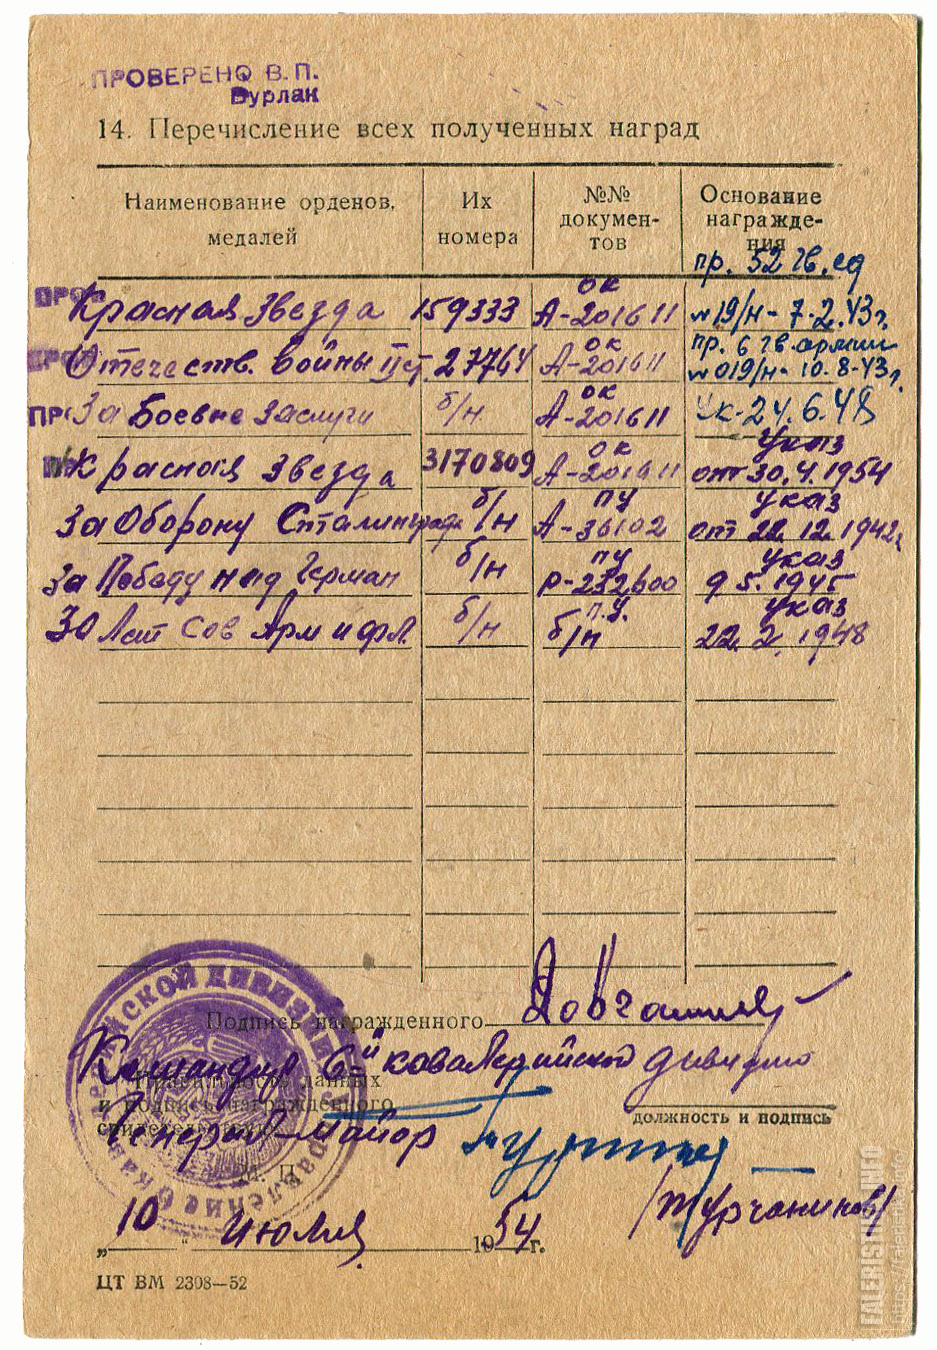 ПРОВЕРЕНО В. П.
Бурлак
14. Перечисление всех полученных наград
Наименование орденов, медалей
Их номера
№№ документов
Основание награждения
Красная Звезда 159333 ОК А-201611 пр. 52 гв. сд №19/н - 7.2.43г.
Отечеств. войны II ст. 27764 ОК А-201611 пр. 6 гв. армии №019/н - 10.8.43г.
За Боевые Заслуги б/н ОК А-201611 Ук-24.6.48
Красная Звезда 3170809 ОК А-201611 указ от 30.4.1954
За Оборону Сталинграда б/н ПУ А-36102 указ от 22.12.1942г.
За Победу над Герман б/н ПУ Р-232600 указ 9 5.1945
30 Лет Сов Арм и фл. б/н п.у. б/н указ 22.2.1948
Подпись награжденного
Командир 6-й кавалерийской дивизии
Правильность данных
и подпись награжденного
свидетельствую
должность и подпись
Генерал-Майор
М. П.
/Турчанинов/
„10“ Июля 1954 г.
ЦТ ВМ 2308—52
FALERISTIKA.INFO
https://faleristika.info